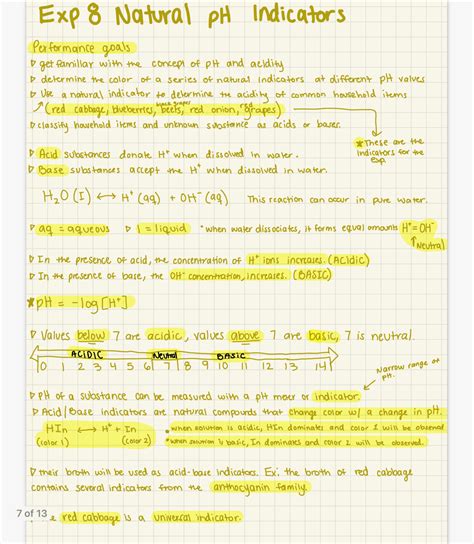 Exp 8 Natural pH Indicators
Performance goals
▷ get familiar with the concept of pH and acidity
▷ determine the color of a series of natural indicators at different pH values
▷ Use a natural indicator to determine the acidity of common household items
black grapes
(red cabbage, blueberries, beets, red onion, grapes)
red
▷ classify household items and unknown substance as acids or bases.
* These are the
indicators for the
exp.
▷ Acid substances donate H⁺ when dissolved in water.
▷ Base substances accept the H⁺ when dissolved in water.
H₂O (l) ⟷ H⁺ (aq) + OH⁻ (aq) This reaction can occur in pure water.
▷ aq = aqueous ▷ l = liquid * when water dissociates, it forms equal amounts H⁺ = OH⁻
↑ Neutral
▷ In the presence of acid, the concentration of H⁺ ions increases. (Acidic)
▷ In the presence of base, the OH⁻ concentration, increases. (BASIC)
* pH = -log[H⁺]
▷ Values below 7 are acidic, values above 7 are basic, 7 is neutral.
ACIDIC Neutral BASIC
0 1 2 3 4 5 6 7 8 9 10 11 12 13 14
Narrow range of
pH.
▷ pH of a substance can be measured with a pH meter or indicator.
▷ Acid/Base indicators are natural compounds that change color w/ a change in pH.
HIn ⟷ H⁺ + In
(color 1) (color 2)
* when solution is acidic, HIn dominates and color 1 will be observed
* when solution is basic, In dominates and color 2 will be observed.
▷ their broth will be used as acid-base indicators. Ex: the broth of red cabbage
contains several indicators from the anthocyanin family.
7 of 13
red cabbage is a universal indicator.